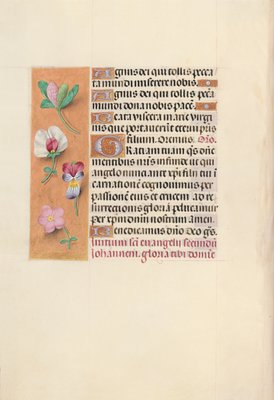 Agnus dei qui tollis pecca
ta mundi miserere nobis.
Agnus dei qui tollis pecca
ta mundi dona nobis pacē.
Beata viscera marie virgi
nis que portaverūt eterni pris
filium. Oremus. Orō.
Gratiam tuam qs̄ dn̄e
mentibus nr̄is infunde ut qui
angelo nunctiante xp̄i filii tui in
carnationē cognovimus per
passionē eius et crucem ad re
surrectionis gloriā perducamur
per xp̄m dn̄m nostrum amen.
Benedicamus dn̄o Deo grās.
Initium sc̄i euangelii secundū
Johannem. gloria tibi domīe